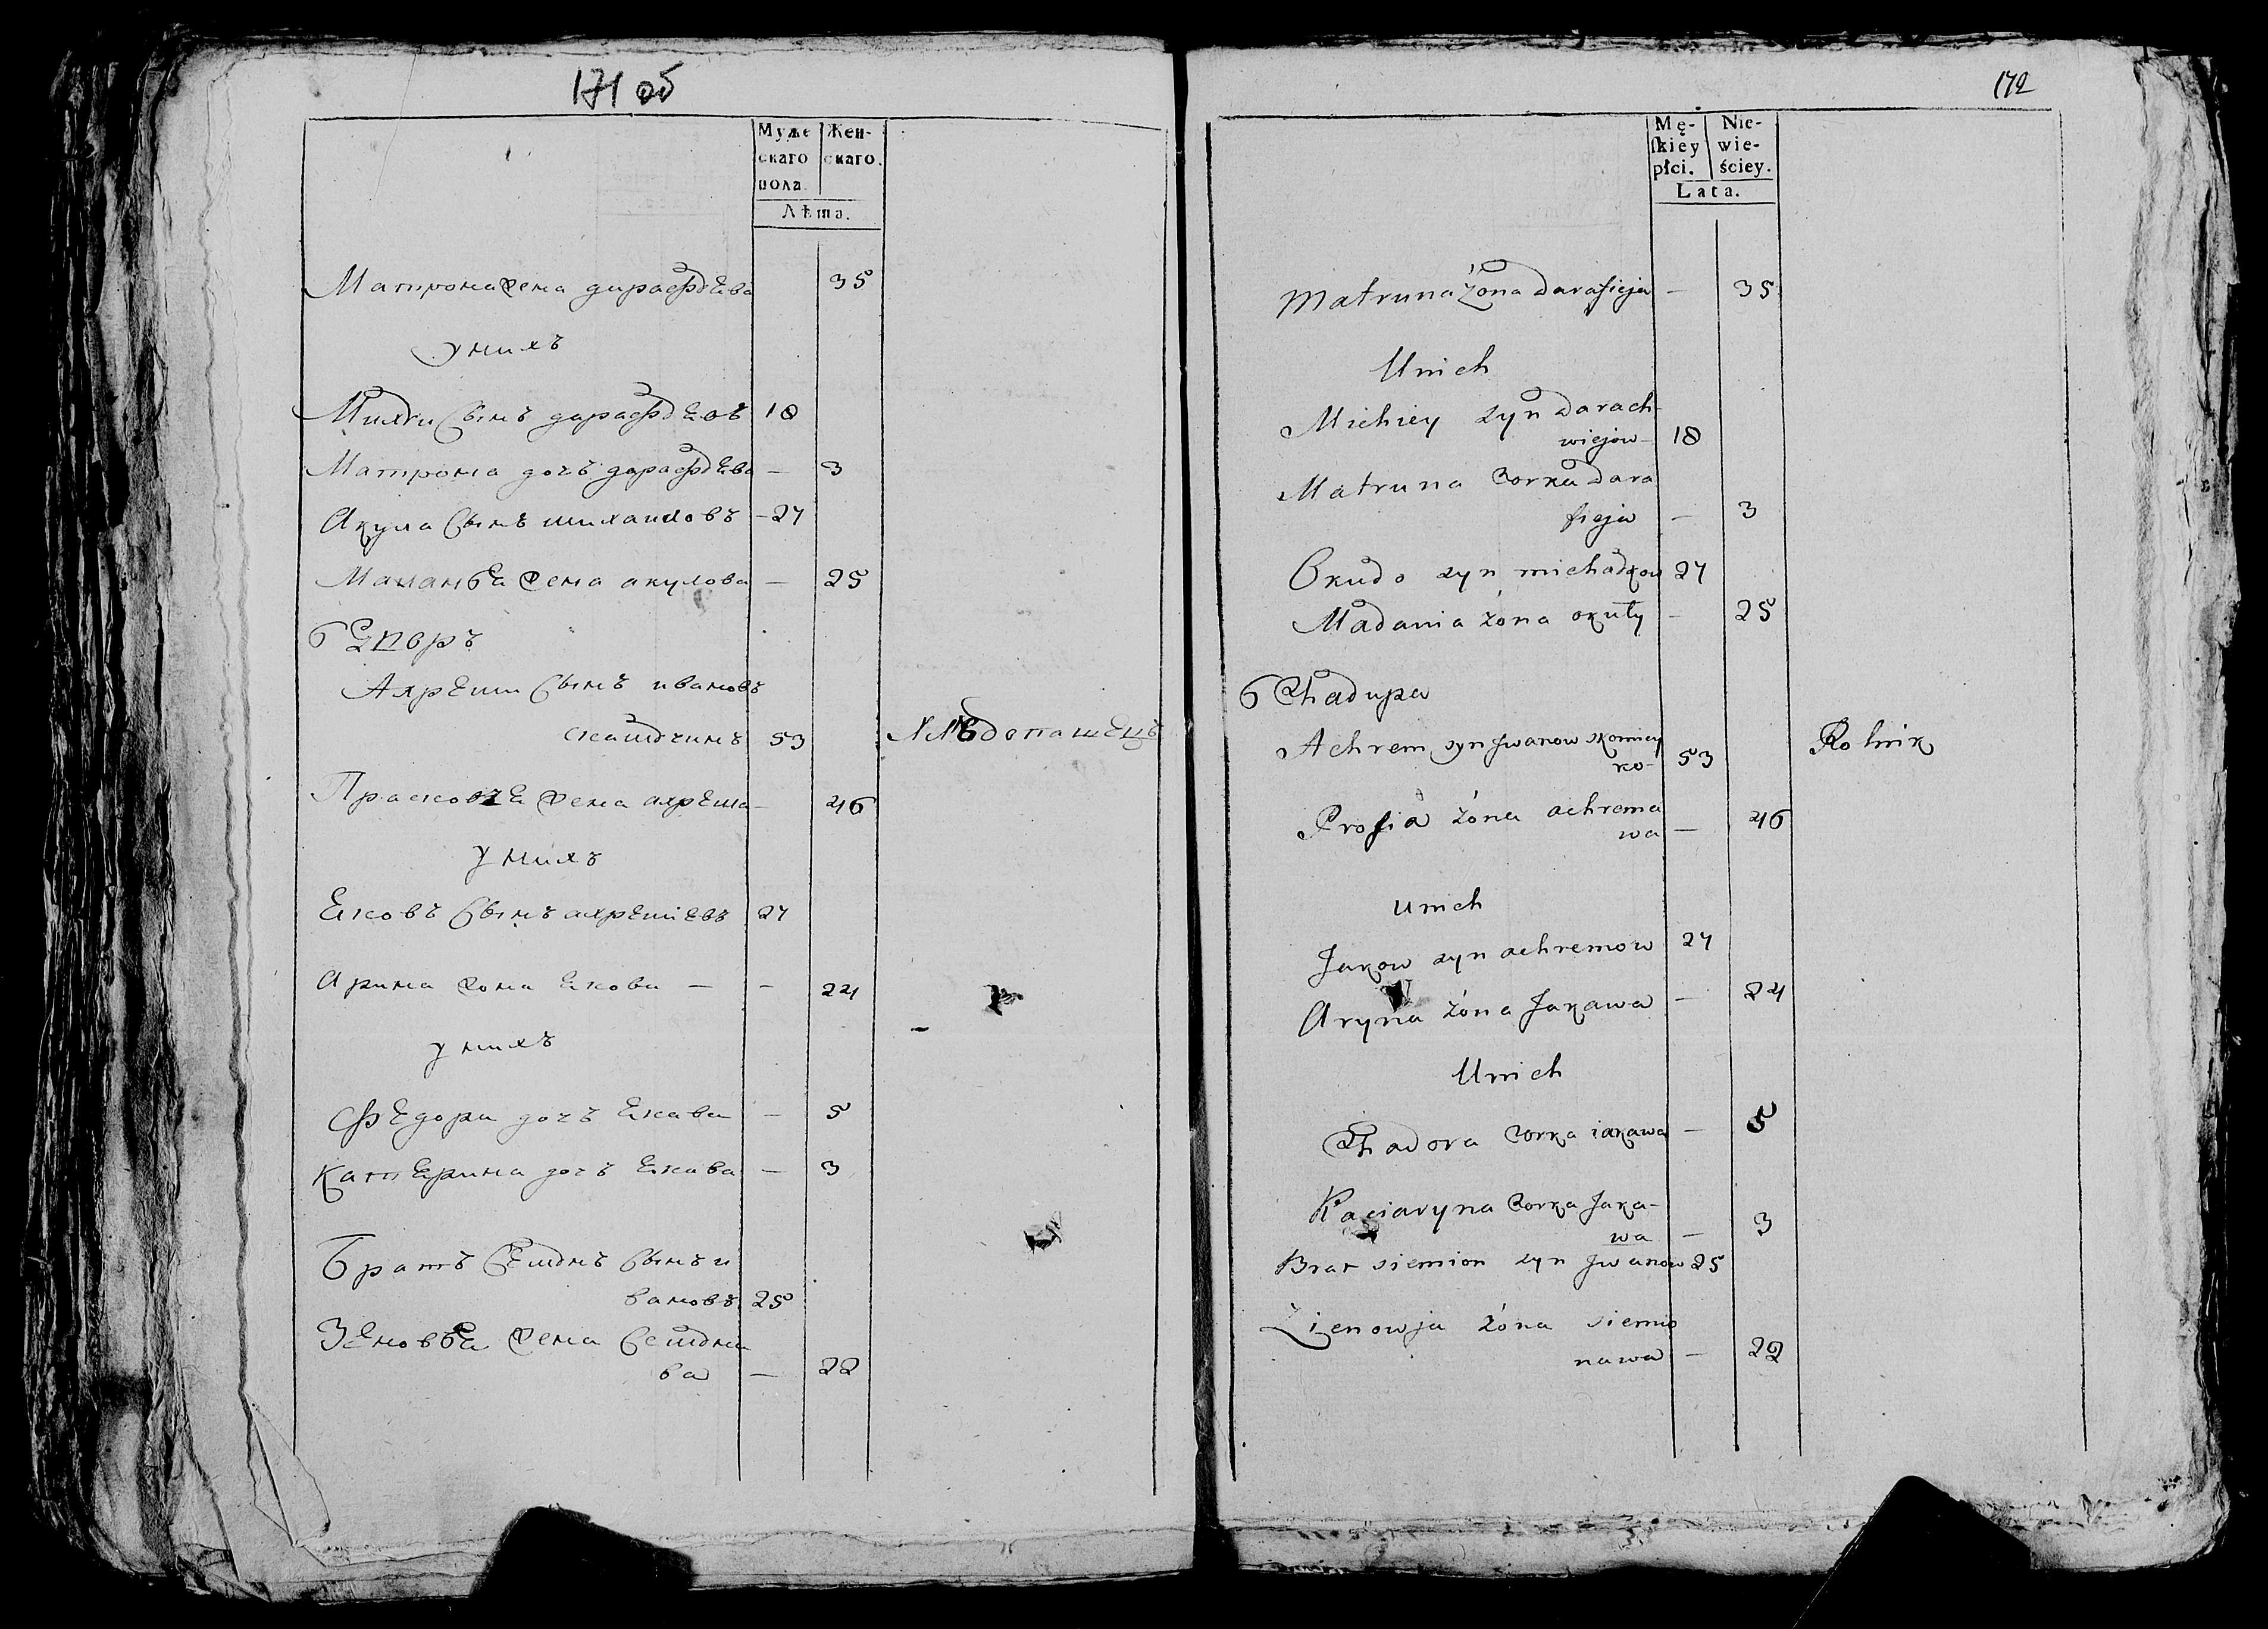 171 об
Муже
скаго
пола.
Жен-
скаго.
Лѣта.
Матрона жена дарафѣева 35
у нихъ
Михѣи сынъ дарафѣевъ 18
Матрона дочъ дарафѣева — 3
Акула сынъ михаиловъ — 27
Маланья жена акулова — 25
6 Дворъ
Ахремъ сынъ ивановъ
53 Хлѣбопашецъ
жена ахрема — 46
у нихъ
Яковъ сынъ ахремiевъ 27
Арина жона Якова — — 24
у нихъ
Федора дочъ Якава — 5
Катерина дочъ Якава — 3
Братъ Семiонъ сынъ и
вановъ 25
Зеновья жена Семiона
ва — 22
172
Mę-
skiey
płci.
Nie-
wie-
ściey.
Lata.
Matruna żona darafieja — 35
Unich
Michiey syn darach-
wiejow — 18
Matruna corka dara
fieja — 3
Okuło syn michałkow 27
Małania żona okuły — 25
6 Chałupa
Achrem syn Jwanow
ko — 53 Rolnik
Prosia żona achrema
wa — 46
unich
Jakow syn achremow 27
Aryna żona Jakawa — 24
Unich
Chadora corka iakawa — 5
Kaciaryna corka Jaka-
wa — 3
Brat siemion syn Jwanow 25
Zienowja żona siemio
nawa — 22